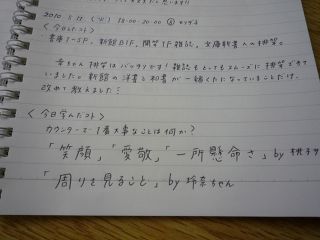 2010 5.12.(火) 18:00-20:00
<今日したコト>
書庫1-5F、新館B1F、開架1F雑誌、文庫新書への排架。
幸ちゃん排架はバッチリです!雑誌もとてもスムーズに排架できて
いました。新館の洋書と和書が一緒くたになっていましたけど、
改めて教えました!
<今日学んだコト>
カウンターで1番大事なことは何か?
「笑顔」「愛敬」「一所懸命さ」by 桃子
「周りを見ること」by 玲奈ちゃん